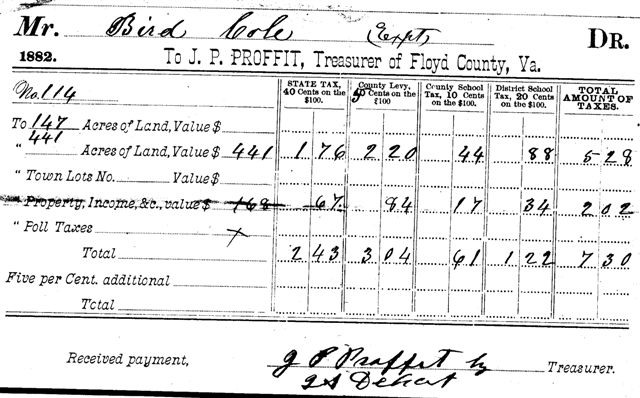 Mr. Bird Cole (Expt) DR.
1882. To J. P. PROFFIT, Treasurer of Floyd County, Va.
No. 114
STATE TAX, 40 Cents on the $100.
County Levy, 50 Cents on the $100
County School Tax, 10 Cents on the $100.
District School Tax, 20 Cents on the $100.
TOTAL AMOUNT OF TAXES.
To 147 Acres of Land, Value $
441
" Acres of Land, Value $ 441 1 76 2 20 44 88 5 28
" Town Lots No. Value $
" Property, Income, &c., value $ 168 67 84 17 34 2 02
" Poll Taxes x
Total 2 43 3 04 61 1 22 7 30
Five per Cent. additional
Total
Received payment, J P Proffit by Treasurer.